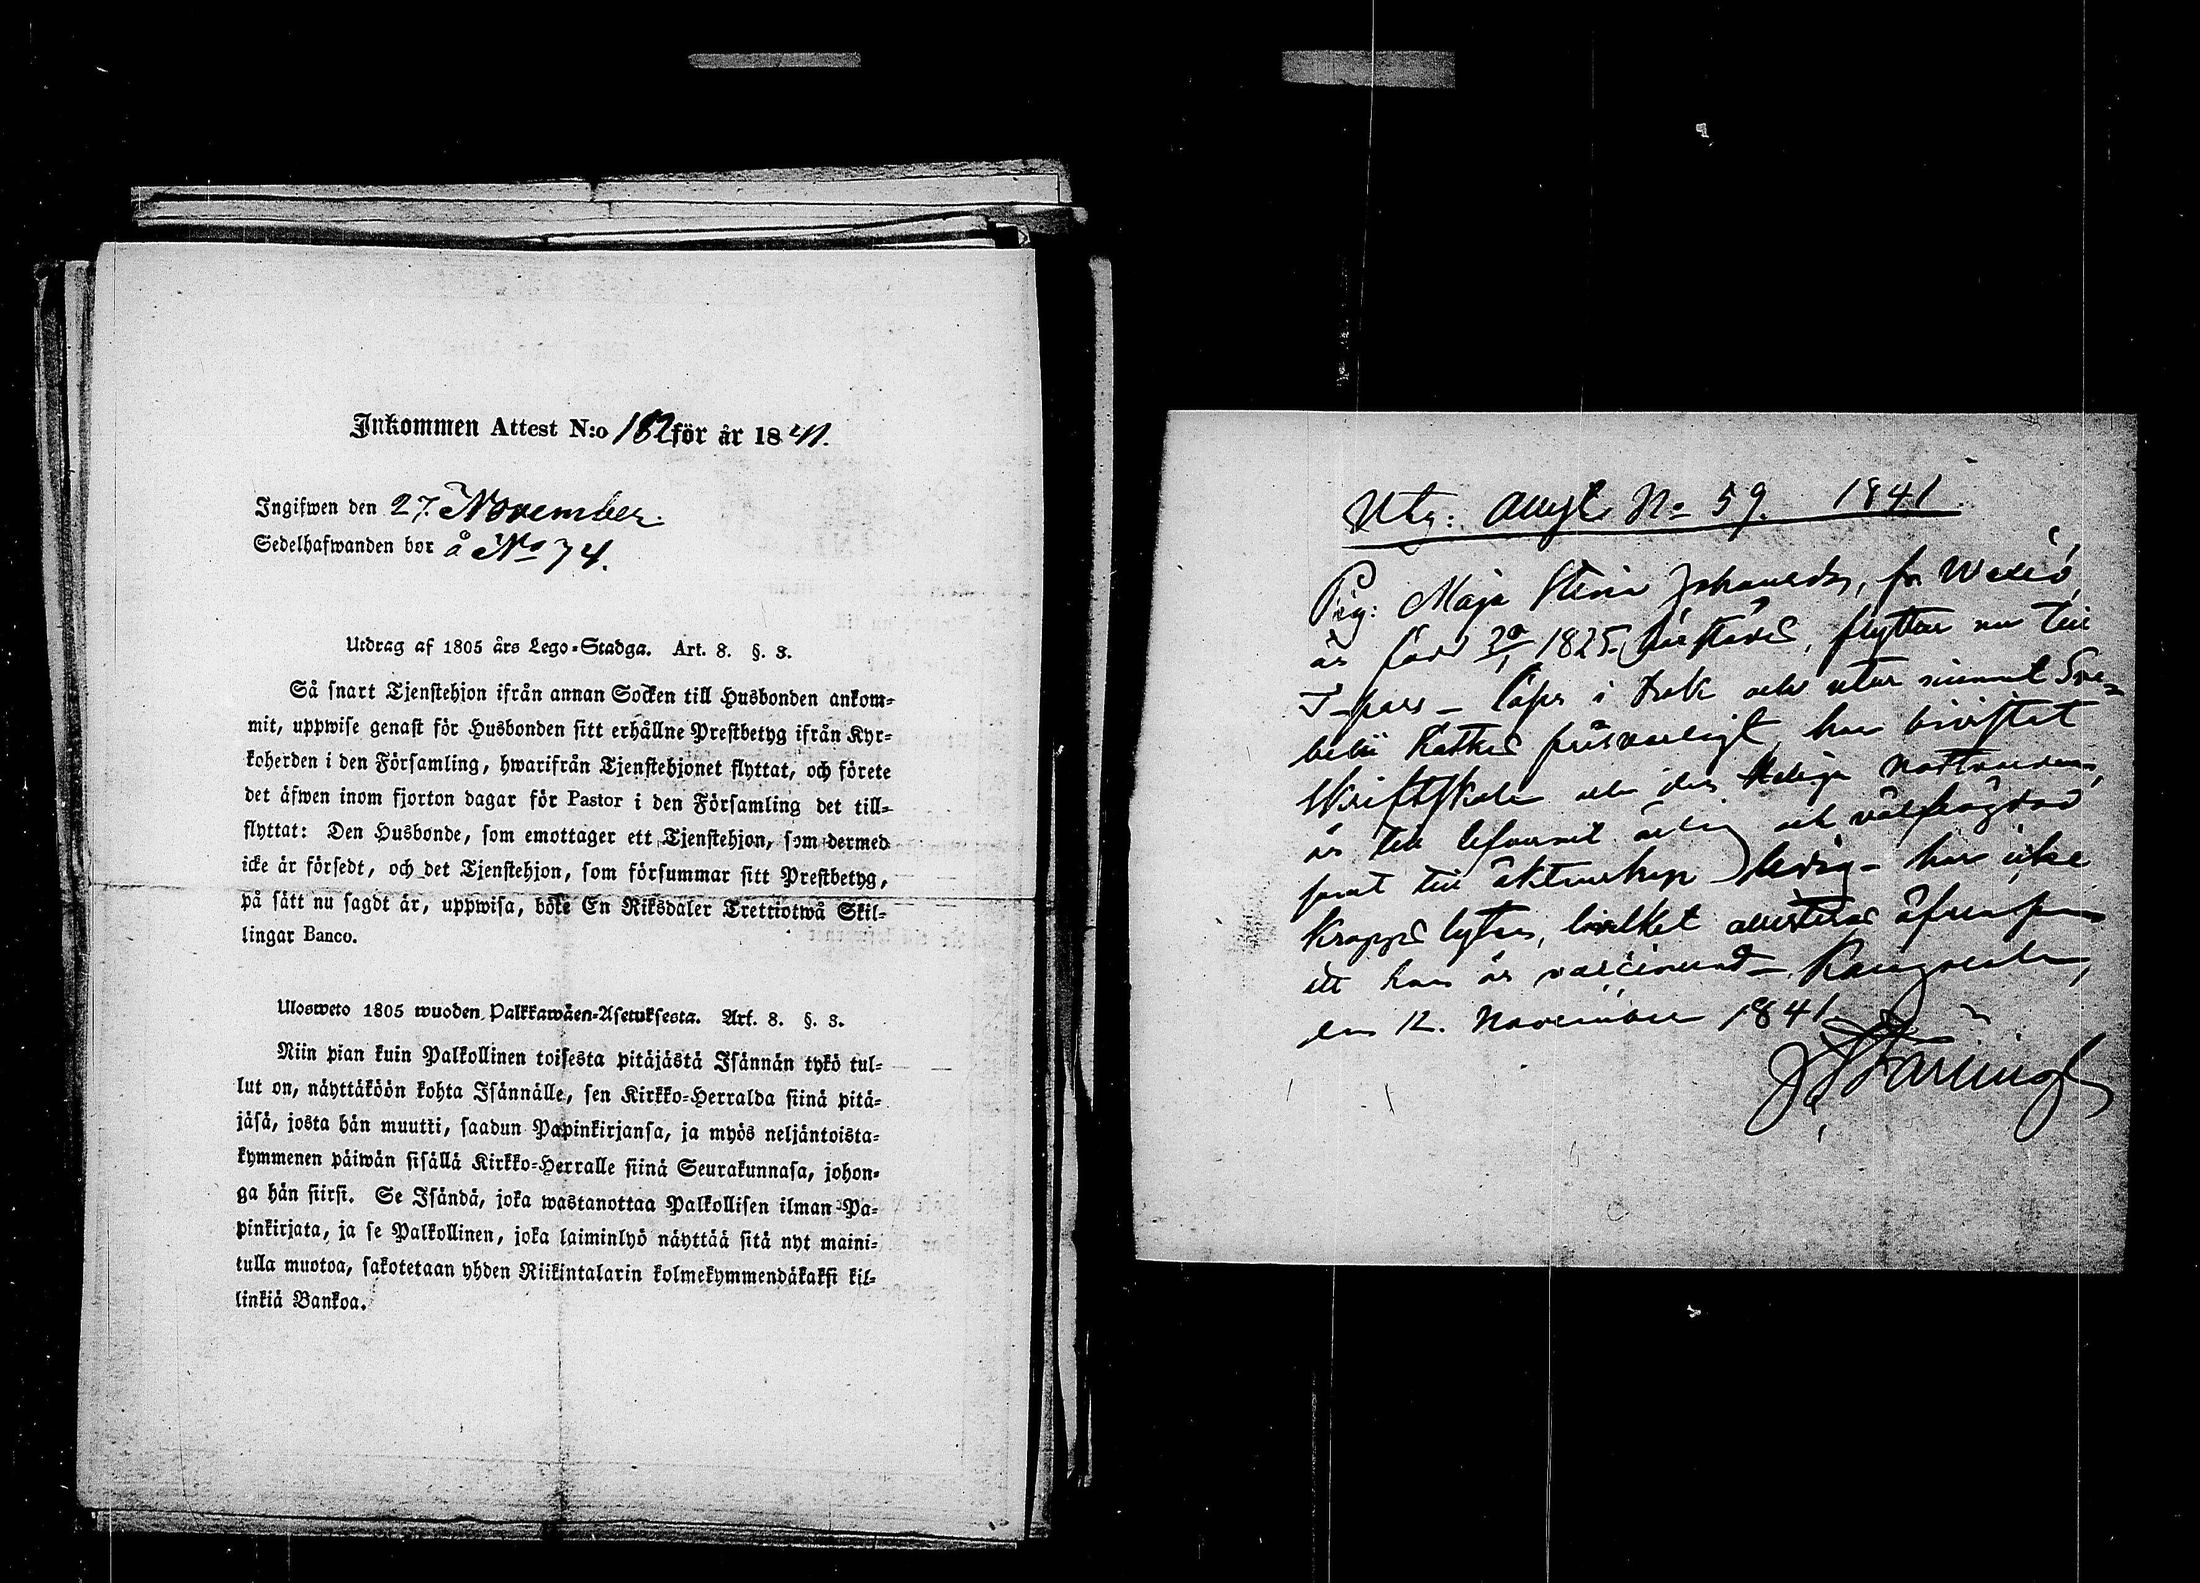 Inkommen Attest N:o 182 för år 1841.
Ingifwen den 27. November.
Sedelhafwanden bor å No 74.
Utdrag af 1805 års Lego-Stadga. Art. 8. §. 3.
Så snart Tjenstehjon ifrån annan Socken till Husbonden ankom-
mit, uppwise genast för Husbonden sitt erhållne Prestbetyg ifrån Kyr-
koherden i den Församling, hwarifrån Tjenstehjonet flyttat, och förete
det äfwen inom fjorton dagar för Pastor i den Församling det till-
flyttat: Den Husbonde, som emottager ett Tjenstehjon, som dermed
icke är försedt, och det Tjenstehjon, som försummar sitt Prestbetyg,
på sätt nu sagdt är, uppwisa, böte En Riksdaler Trettiotwå Skil-
lingar Banco.
Ulosweto 1805 wuoden Palkkawäen-Asetuksesta. Art. 8. §. 3.
Niin pian kuin Palkollinen toisesta pitäjästä Isännän tykö tul-
lut on, näyttäköön kohta Isännälle, sen Kirkko-Herralda siinä pitä-
jäsä, josta hän muutti, saadun Papinkirjansa, ja myös neljäntoista-
kymmenen päiwän sisällä Kirkko-Herralle siinä Seurakunnasa, johon-
ga hän siirsi. Se Isändä, joka wastanottaa Palkollisen ilman Pa-
pinkirjata, ja se Palkollinen, joka laiminlyö näyttää sitä nyt maini-
tulla muotoa, sakotetaan yhden Riikintalarin kolmekymmendäkaksi kil-
linkiä Bankoa.
Utg: No 59. 1841
Pig: Maja Stina fr
är född 1825 flyttar nu till
i bok och utur minnet
försvarligt, har bivistat
Skriftskola och den Heliga nattvarden,
är till lefvernet ärlig och välfrägdad
samt till äktenskap ledig - har icke
Kropps lyten, hvilket attesteras äfvensom
att hon är vaccinerad
den 12. November 1841.